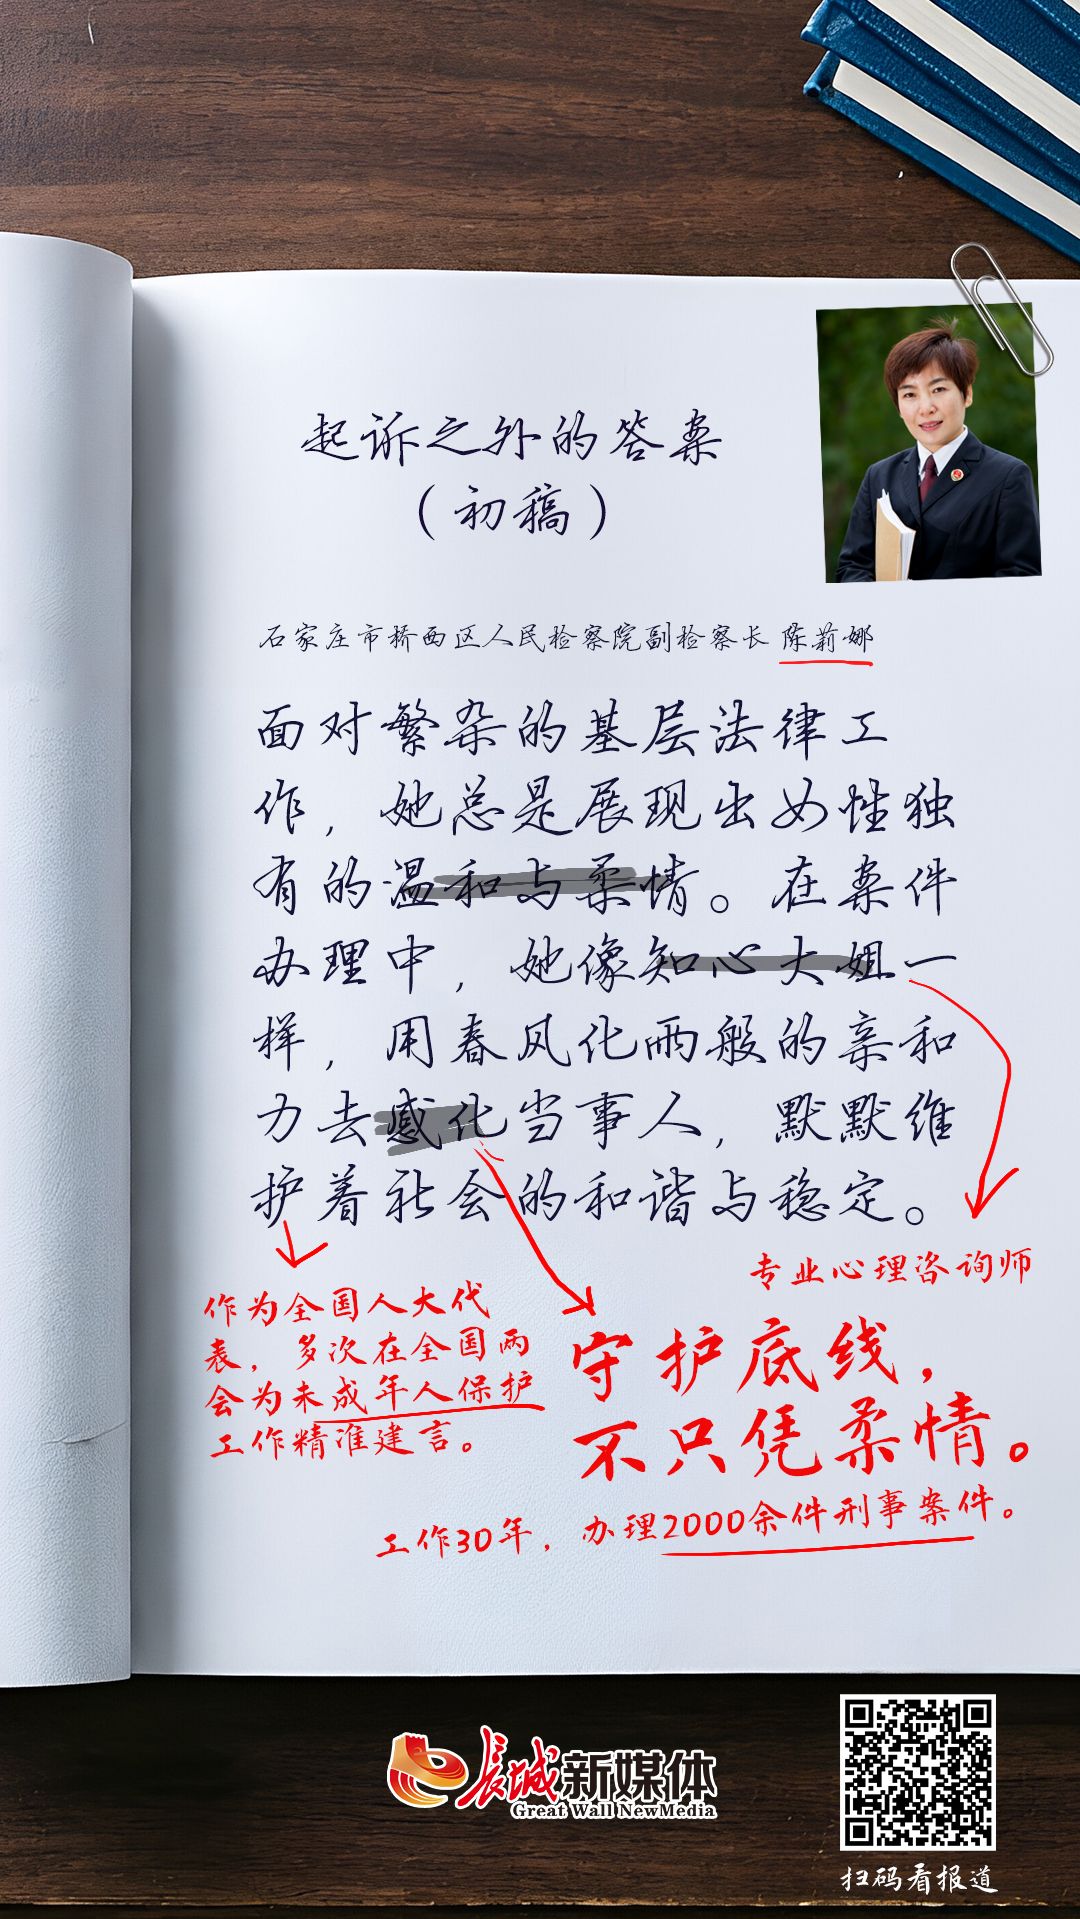 起诉之外的答案
（初稿）
石家庄市桥西区人民检察院副检察长 陈莉娜
面对繁杂的基层法律工
作，她总是展现出女性独
有的温和与柔情。在案件
办理中，她像知心大姐一
样，用春风化雨般的亲和
力去感化当事人，默默维
护着社会的和谐与稳定。
专业心理咨询师
作为全国人大代
表，多次在全国两
会为未成年人保护
工作精准建言。
守护底线，
不只凭柔情。
工作30年，办理2000余件刑事案件。
长城新媒体
Great Wall NewMedia
扫码看报道